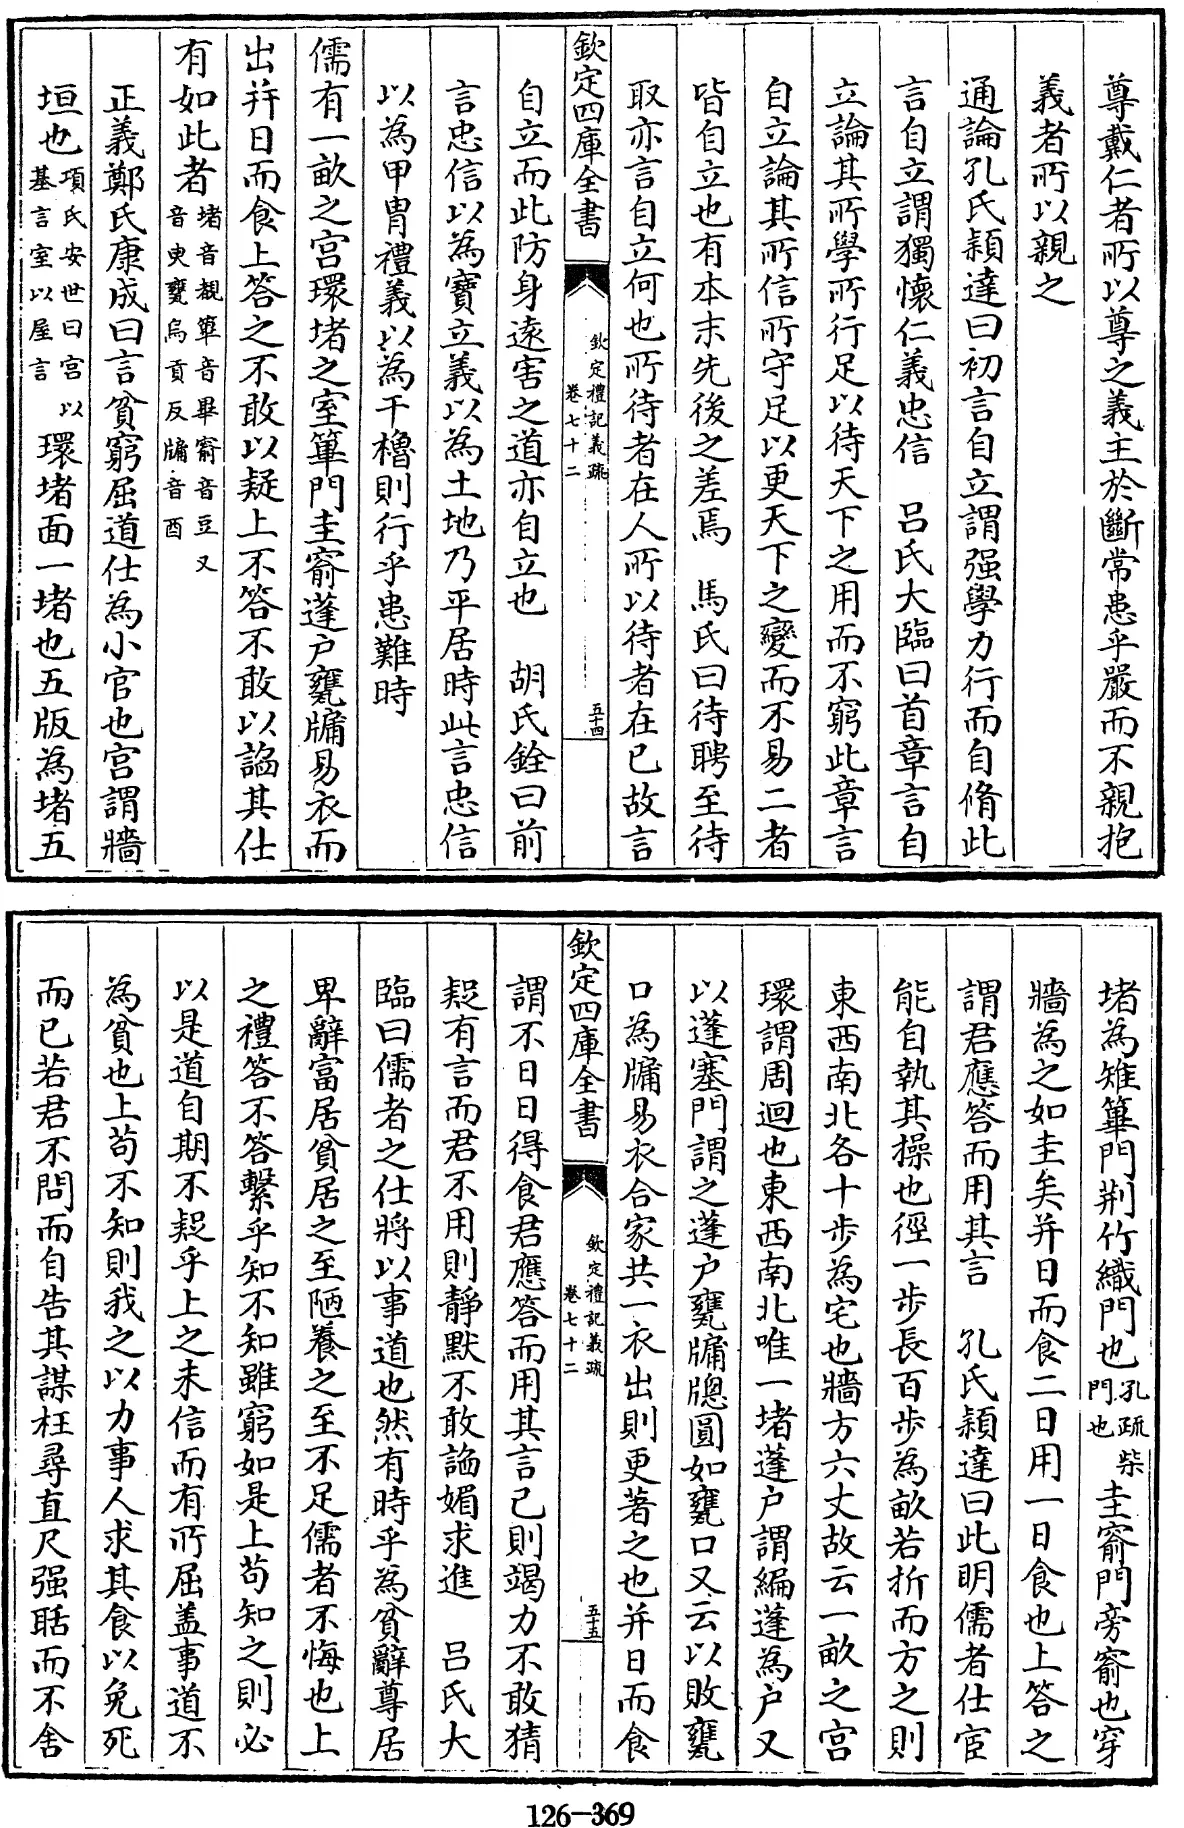 尊戴仁者所以尊之義主於斷常患乎嚴而不親抱
義者所以親之
通論孔氏穎達曰初言自立謂强學力行而自脩此
言自立謂獨懷仁義忠信　呂氏大臨曰首章言自
立論其所學所行足以待天下之用而不窮此章言
自立論其所信所守足以更天下之變而不易二者
皆自立也有本末先後之差焉　馬氏曰待聘至待
取亦言自立何也所待者在人所以待者在已故言
欽定四庫全書　欽定禮記義疏　卷七十二　五十四
自立而此防身遠害之道亦自立也　胡氏銓曰前
言忠信以為寶立義以為土地乃平居時此言忠信
以為甲冑禮義以為干櫓則行乎患難時
儒有一畝之宮環堵之室篳門圭窬蓬户甕牖易衣而
出并日而食上答之不敢以疑上不答不敢以謟其仕
有如此者堵音覩篳音畢窬音豆又音臾甕烏貢反牖音酉
正義鄭氏康成曰言貧窮屈道仕為小官也宮謂牆
垣也項氏安世曰宮以基言室以屋言環堵面一堵也五版為堵五
堵為雉篳門荆竹織門也孔疏柴門也圭窬門旁窬也穿
牆為之如圭矣并日而食二日用一日食也上答之
謂君應答而用其言　孔氏穎達曰此明儒者仕宦
能自執其操也徑一步長百步為畝若折而方之則
東西南北各十步為宅也牆方六丈故云一畝之宮
環謂周迴也東西南北唯一堵蓬户謂編蓬為户又
以蓬塞門謂之蓬户甕牖牕圓如甕口又云以敗甕
口為牖易衣合家共一衣出則更著之也并日而食
欽定四庫全書　欽定禮記義疏　卷七十二　五十五
謂不日日得食君應答而用其言己則竭力不敢猜
疑有言而君不用則靜默不敢謟媚求進　呂氏大
臨曰儒者之仕將以事道也然有時乎為貧辭尊居
卑辭富居貧居之至陋養之至不足儒者不悔也上
之禮答不答繫乎知不知雖窮如是上苟知之則必
以是道自期不疑乎上之未信而有所屈盖事道不
為貧也上苟不知則我之以力事人求其食以免死
而已若君不問而自告其謀枉尋直尺强聒而不舍
126-369